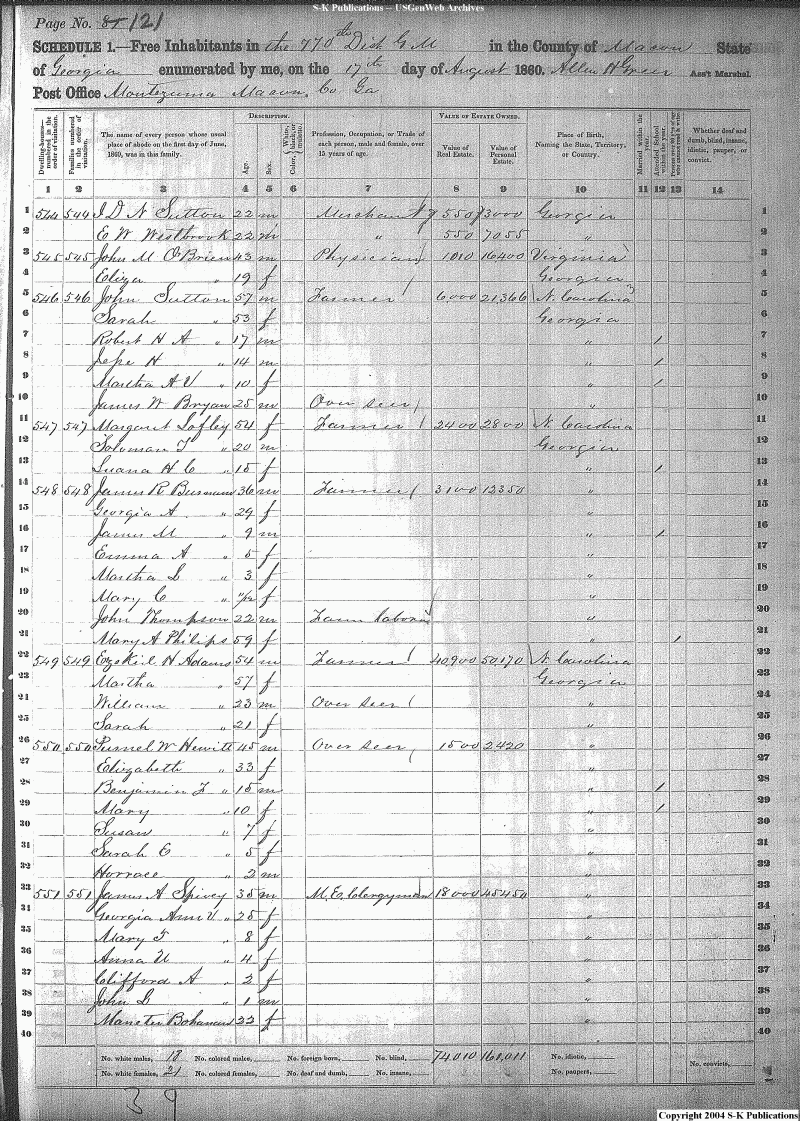 S-K Publications – USGenWeb Archives
Page No. 85 121
SCHEDULE 1.—Free Inhabitants in the 770th Dist G M in the County of Macon State
of Georgia enumerated by me, on the 17th day of August 1860. Allen H Greer Ass't Marshal.
Post Office Montezuma Macon Co Ga
DESCRIPTION. VALUE OF ESTATE OWNED.
Dwelling-houses numbered in the order of visitation. Families numbered in the order of visitation. The name of every person whose usual place of abode on the first day of June, 1860, was in this family. Age. Sex. Color, White, black, or mulatto. Profession, Occupation, or Trade of each person, male and female, over 15 years of age. Value of Real Estate. Value of Personal Estate. Place of Birth, Naming the State, Territory, or Country. Married within the year. Attended School within the year. Whether deaf and dumb, blind, insane, idiotic, pauper, or convict.
1 2 3 4 5 6 7 8 9 10 11 12 13 14
1 544 544 J D N Sutton 22 m Merchant 550 73000 Georgia 1
2 E W Westbrook 22 m " 550 7055 " 2
3 545 545 John M O'Brien 43 m Physician 1010 16400 Virginia 3
4 Eliza " 19 f Georgia 4
5 546 546 John Sutton 57 m Farmer 6000 21,366 N. Carolina 5
6 Sarah " 53 f Georgia 6
7 Robert H A " 17 m " / 7
8 Jesse H " 14 m " / 8
9 Martha A V " 10 f " / 9
10 James W Bryan 25 m Over seer " 10
11 547 547 Margaret Lofley 54 f Farmer 2400 2800 N Carolina 11
12 Soloman T " 20 m Georgia 12
13 Luana H C " 15 f " / 13
14 548 548 James R 36 m Farmer 3100 12350 " 14
15 Georgia A " 29 f " 15
16 James M " 9 m " / 16
17 Emma A " 5 f " 17
18 Martha L " 3 f " 18
19 Mary C " f " 19
20 John Thompson 22 m Farm laborer " 20
21 Mary A Philips 59 f " / 21
22 549 549 Ezekiel H Adams 54 m Farmer 40900 50170 N. Carolina 22
23 Martha " 57 f Georgia 23
24 William " 23 m Over seer " 24
25 Sarah " 21 f " 25
26 550 550 W Hewitt 45 m Over seer 1500 2420 " 26
27 Elizabeth " 33 f " 27
28 Benjamin F " 15 m " / 28
29 Mary " 10 f " / 29
30 Susan " 7 f " 30
31 Sarah E " 5 f " 31
32 Horrace " 2 m " 32
33 551 551 James A Spivey 35 m M. E. Clergyman 18000 45450 " 33
34 Georgia Ann V " 25 f " 34
35 Mary F " 8 f " 35
36 Anna " 4 f " 36
37 Clifford A " 2 f " 37
38 John L " 1 m " 38
39 22 f " 39
40 40
No. white males, 18 No. colored males, No. foreign born, No. blind, 74010 161,011 No. idiotic, No. convicts,
No. white females, 21 No. colored females, No. deaf and dumb, No. insane, No. paupers,
39
Copyright 2004 S-K Publications